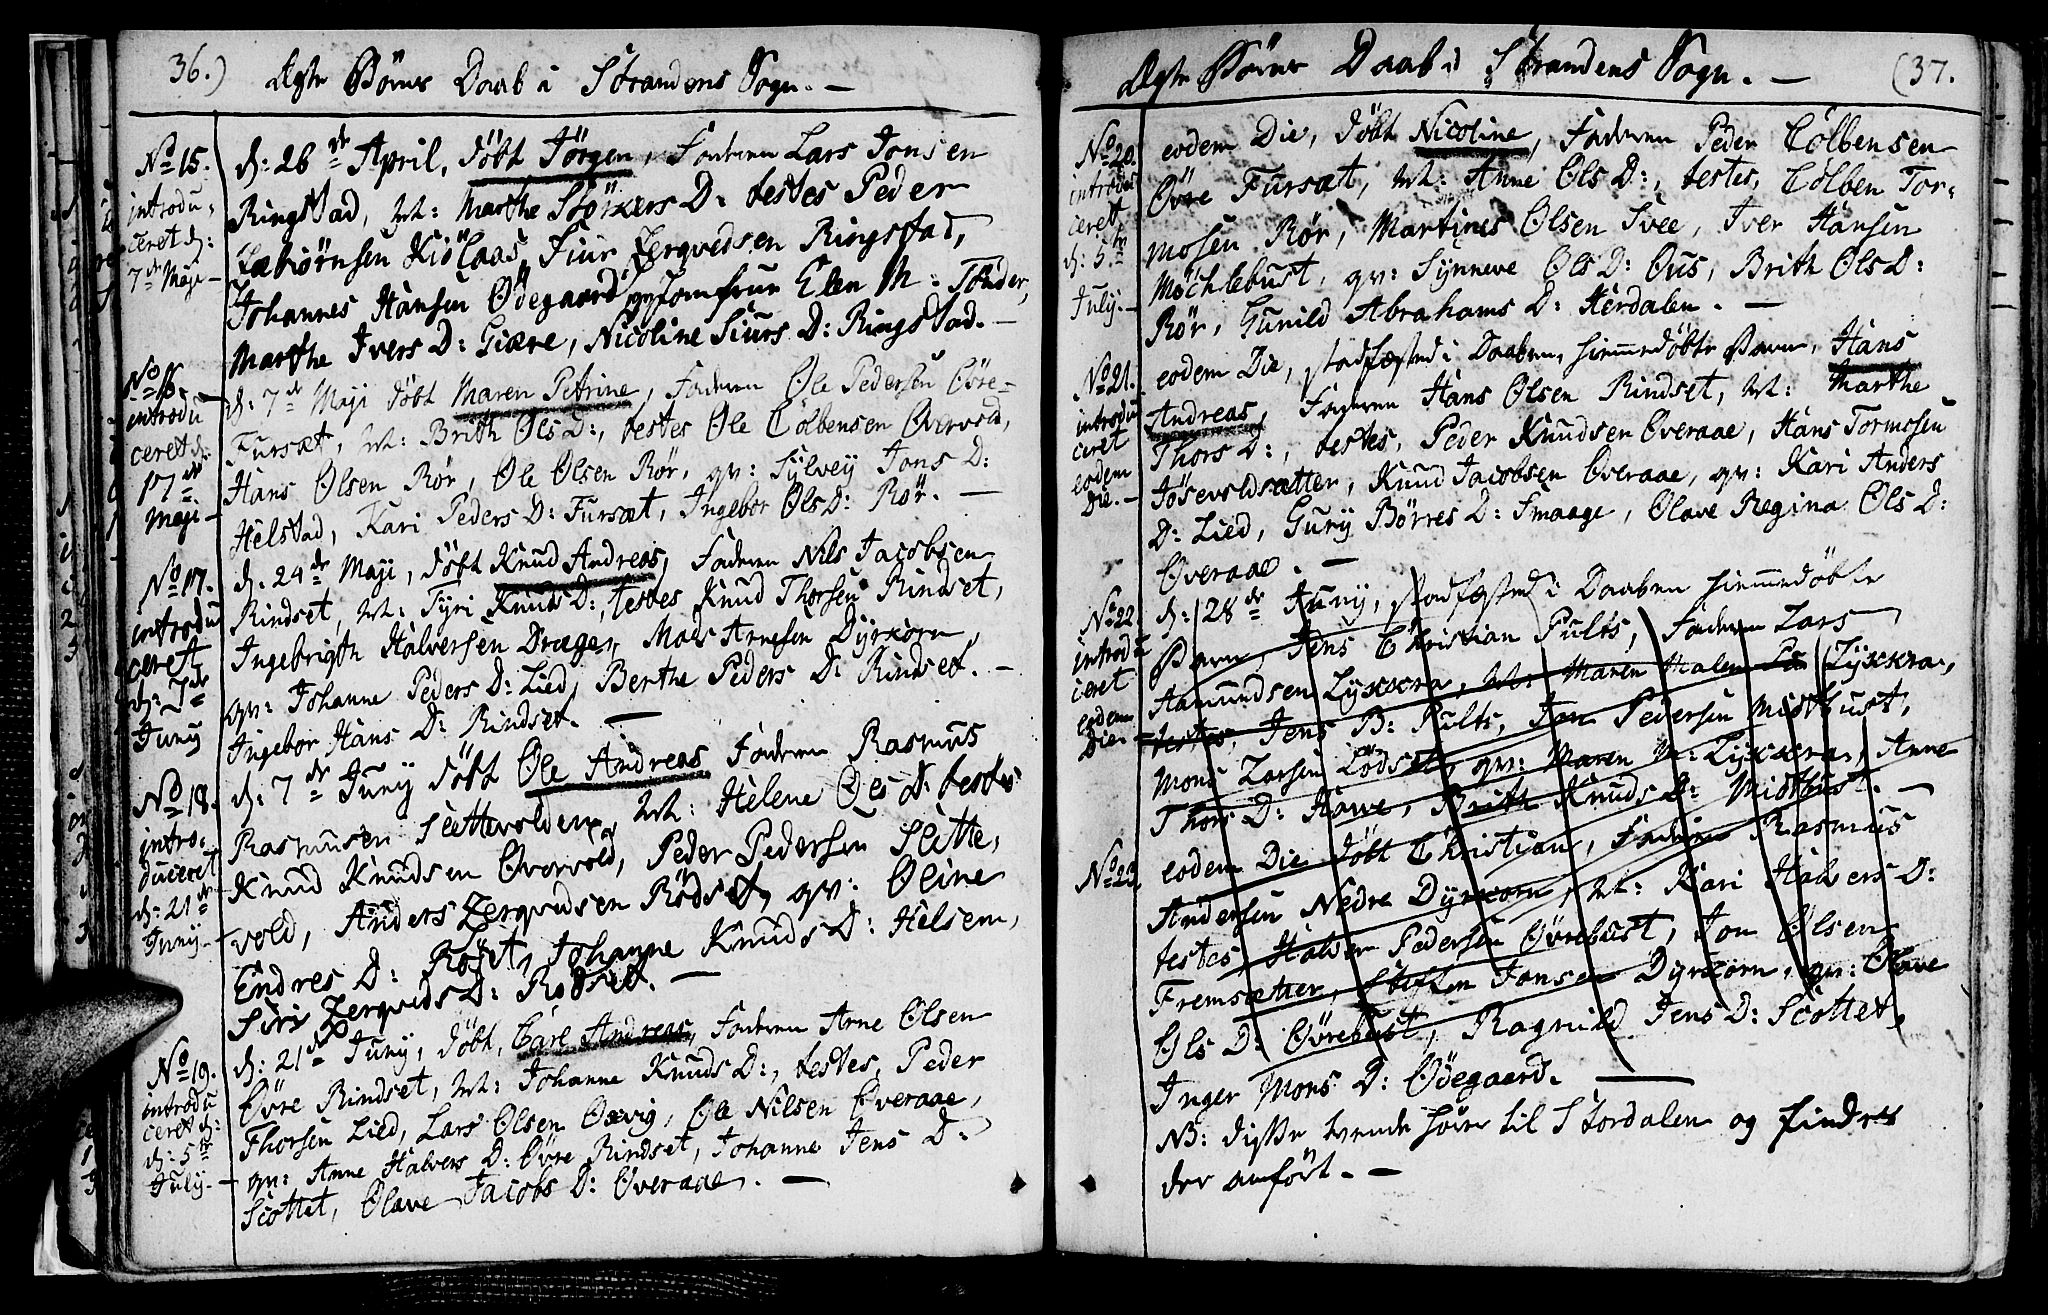 36.) Ægte Børns Daab i Strandens Sogn. —
No 15.
introdu,
ceret d:
7de Maji —
d: 26de April, døbt Jörgen, Faderen Lars Jonsen
Ringstad, M: Marthe Störkers D: testes Peder
Johannes Hansen Ödegaard, qv: Jomfrue Elen M: Tönder,
Marthe Ivers D: Giære, Nicoline Siurs D: Ringstad. —
No 16.
introdu
ceret d:
17de
Maji —
d: 7de Maji döbt Maren Petrine, Faderen Ole Pedersen Övre-
Fursæt, M: Brith Ols D:, testes Ole Cölbensen Overvold,
Hans Olsen Rör, Ole Olsen Rör, qv: Sylvey Jons D:
Helstad, Kari Peders D: Fursæt, Ingebor Ols D: Rör. —
No 17.
introdu
ceret
d: 7de
Juny
d: 24de Maji, döbt Knud Andreas, Faderen Nils Jacobsen
Rindset, M: Fyri Knuds D:, testes Knud Thorsen Rindset,
Ingebrigth Halversen Drage, Mads Arnesen Dyrkorn,
qv: Johanne Peders D: Lied, Berthe Peders D: Rindset. —
Ingebor Hans D: Rindset. —
No 18.
intro-
duceret
d: 21de
Juny —
d: 7de Juny döbt Ole Andreas Faderen Rasmus
Rasmusen Slettevolden, M: Helene Ols D: testes
Knud Knudsen Overvold, Peder Pedersen Slette,
vold, Anders Zerqvidsen Rödset, qv: Oline
Endres D: Johanne Knuds D: Helsem,
Siri Zerqvids D: Rödset. —
No 19.
introdu
ceret d:
d: 5te
July. —
d: 21de Juny, döbt, Carl Andreas, Faderen Arne Olsen
Övre Rindset, M: Johanne Knuds D:, testes, Peder
Thorsen Lied, Lars Olsen Oxvig, Ole Nilsen Overaae,
qv: Anne Halvers D: Övre Rindset, Johanne Jens D:
Scottet, Olave Jacobs D: Overaae. —
Ægte Börns Daab i Strandens Sogn. — (37.
No 20.
introdu
ceret
d: 5te
July. —
eodem Die, döbt Nicoline, Faderen Peder Cölbensen
Övre Fursæt, M: Anne Ols D:, testes, Cölben Tor-
mosen Rör, Martines Olsen Svee, Iver Hansen
Möchlebust, qv: Synneve Ols D: Ous, Brith Ols D:
Rör, Gunild Abrahams D: Herdalen. —
No 21.
introdu
ceret
eodem
Die. —
eodem Die, stadfæsted i Daaben, hiemmedöbte Barn, Hans
Andreas, Faderen Hans Olsen Rindset, M: Marthe
Thors D:, testes, Peder Knudsen Overaae, Hans Tormosen
Jösevoldsætter, Knud Jacobsen Overaae, qv: Kari Anders
D: Lied, Gury Börres D: Smaage, Olave Regina Ols D:
Overaae. —
No 22.
introdu
ceret
eodem
Die —
d: 28de Juny, stadfæsted i Daaben hiemmedöbte
Barn, Jens Christian Pults, Faderen Lars
Aamundsen Lyxkra, M: Maren Malen Lyxkra,
testes, Jens B: Pults, Jon Pedersen Midtbust,
Mons Larsen Lödset, qv: Maren M: Lyxkra, Anne
Thors D: Hawe, Brith Knuds D: Midtbust. —
No 23.
eodem Die döbt Christian, Faderen Rasmus
Andersen Nedre Dyrkorn, M: Kari Halvers D:
testes, Halvor Pedersen Övrebust, Jon Olsen
Fremsætter, Steffen Jonsen Dyrkorn, qv: Olave
Ols D: Övrebust, Ragnild Jens D: Scottet,
Inger Mons D: Ödegaard. —
NB: disse tvende hörer til Stordalen og findes
der anfört. —